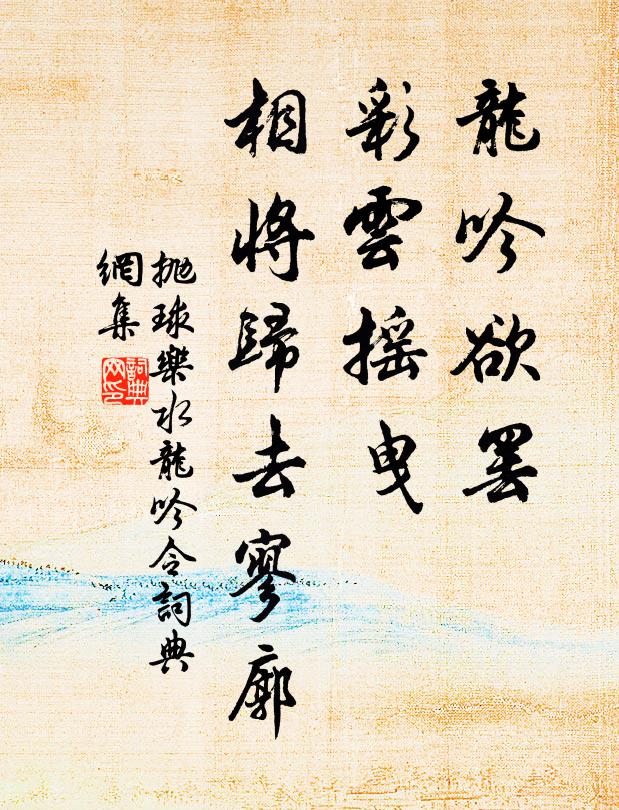 龍吟欲罢
彩雲摇曳
相將歸去寥廓
抛球樂水龍吟令詞典
網集
詞典
网印